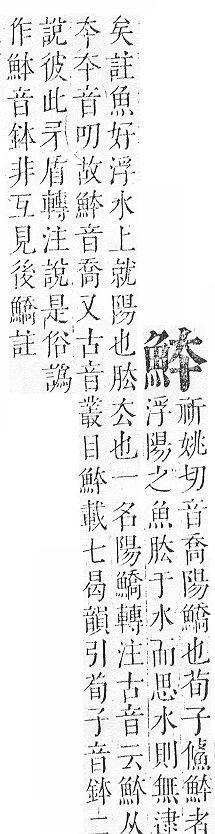 䱁
祈姚切音喬陽鱎也荀子鯈䱁者
浮陽之魚胠于水而思水則無逮
矣註魚好浮水上就陽也胠厺也一名陽鱎轉注古音云䱁从
夲夲音叨故䱁音喬又古音叢目䱁載七曷韻引荀子音鉢二
說彼此矛盾轉注說是俗譌
作䱁音鉢非互見後鱎註